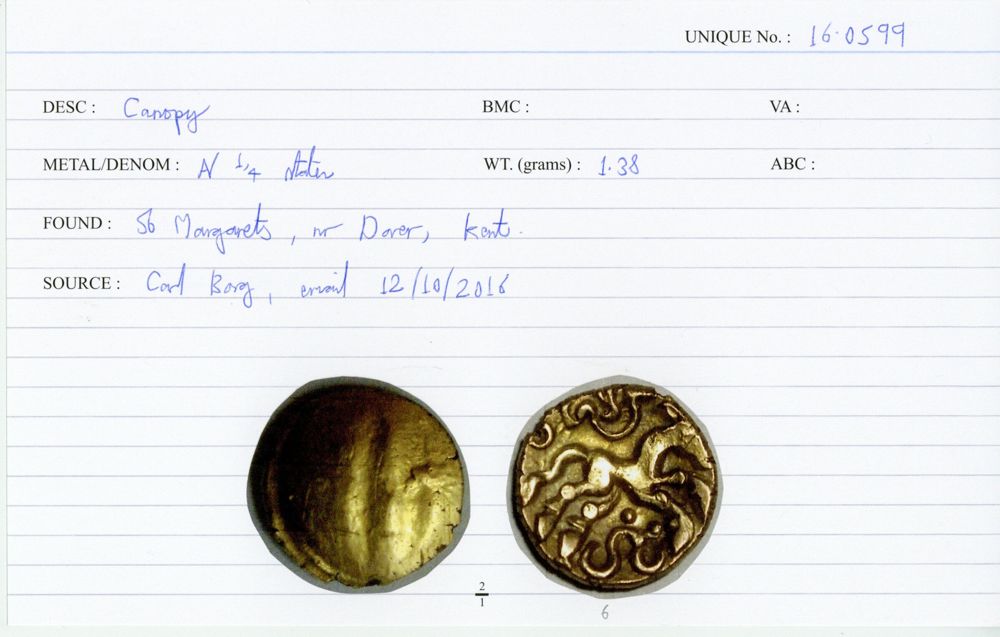 UNIQUE No. : 16.0599
DESC : Canopy BMC : VA :
METAL/DENOM : N 1/4 stater WT. (grams) : 1.38 ABC :
FOUND : St Margarets, nr Dover, Kent.
SOURCE : Carl Borg, email 12/10/2016
2
1
6